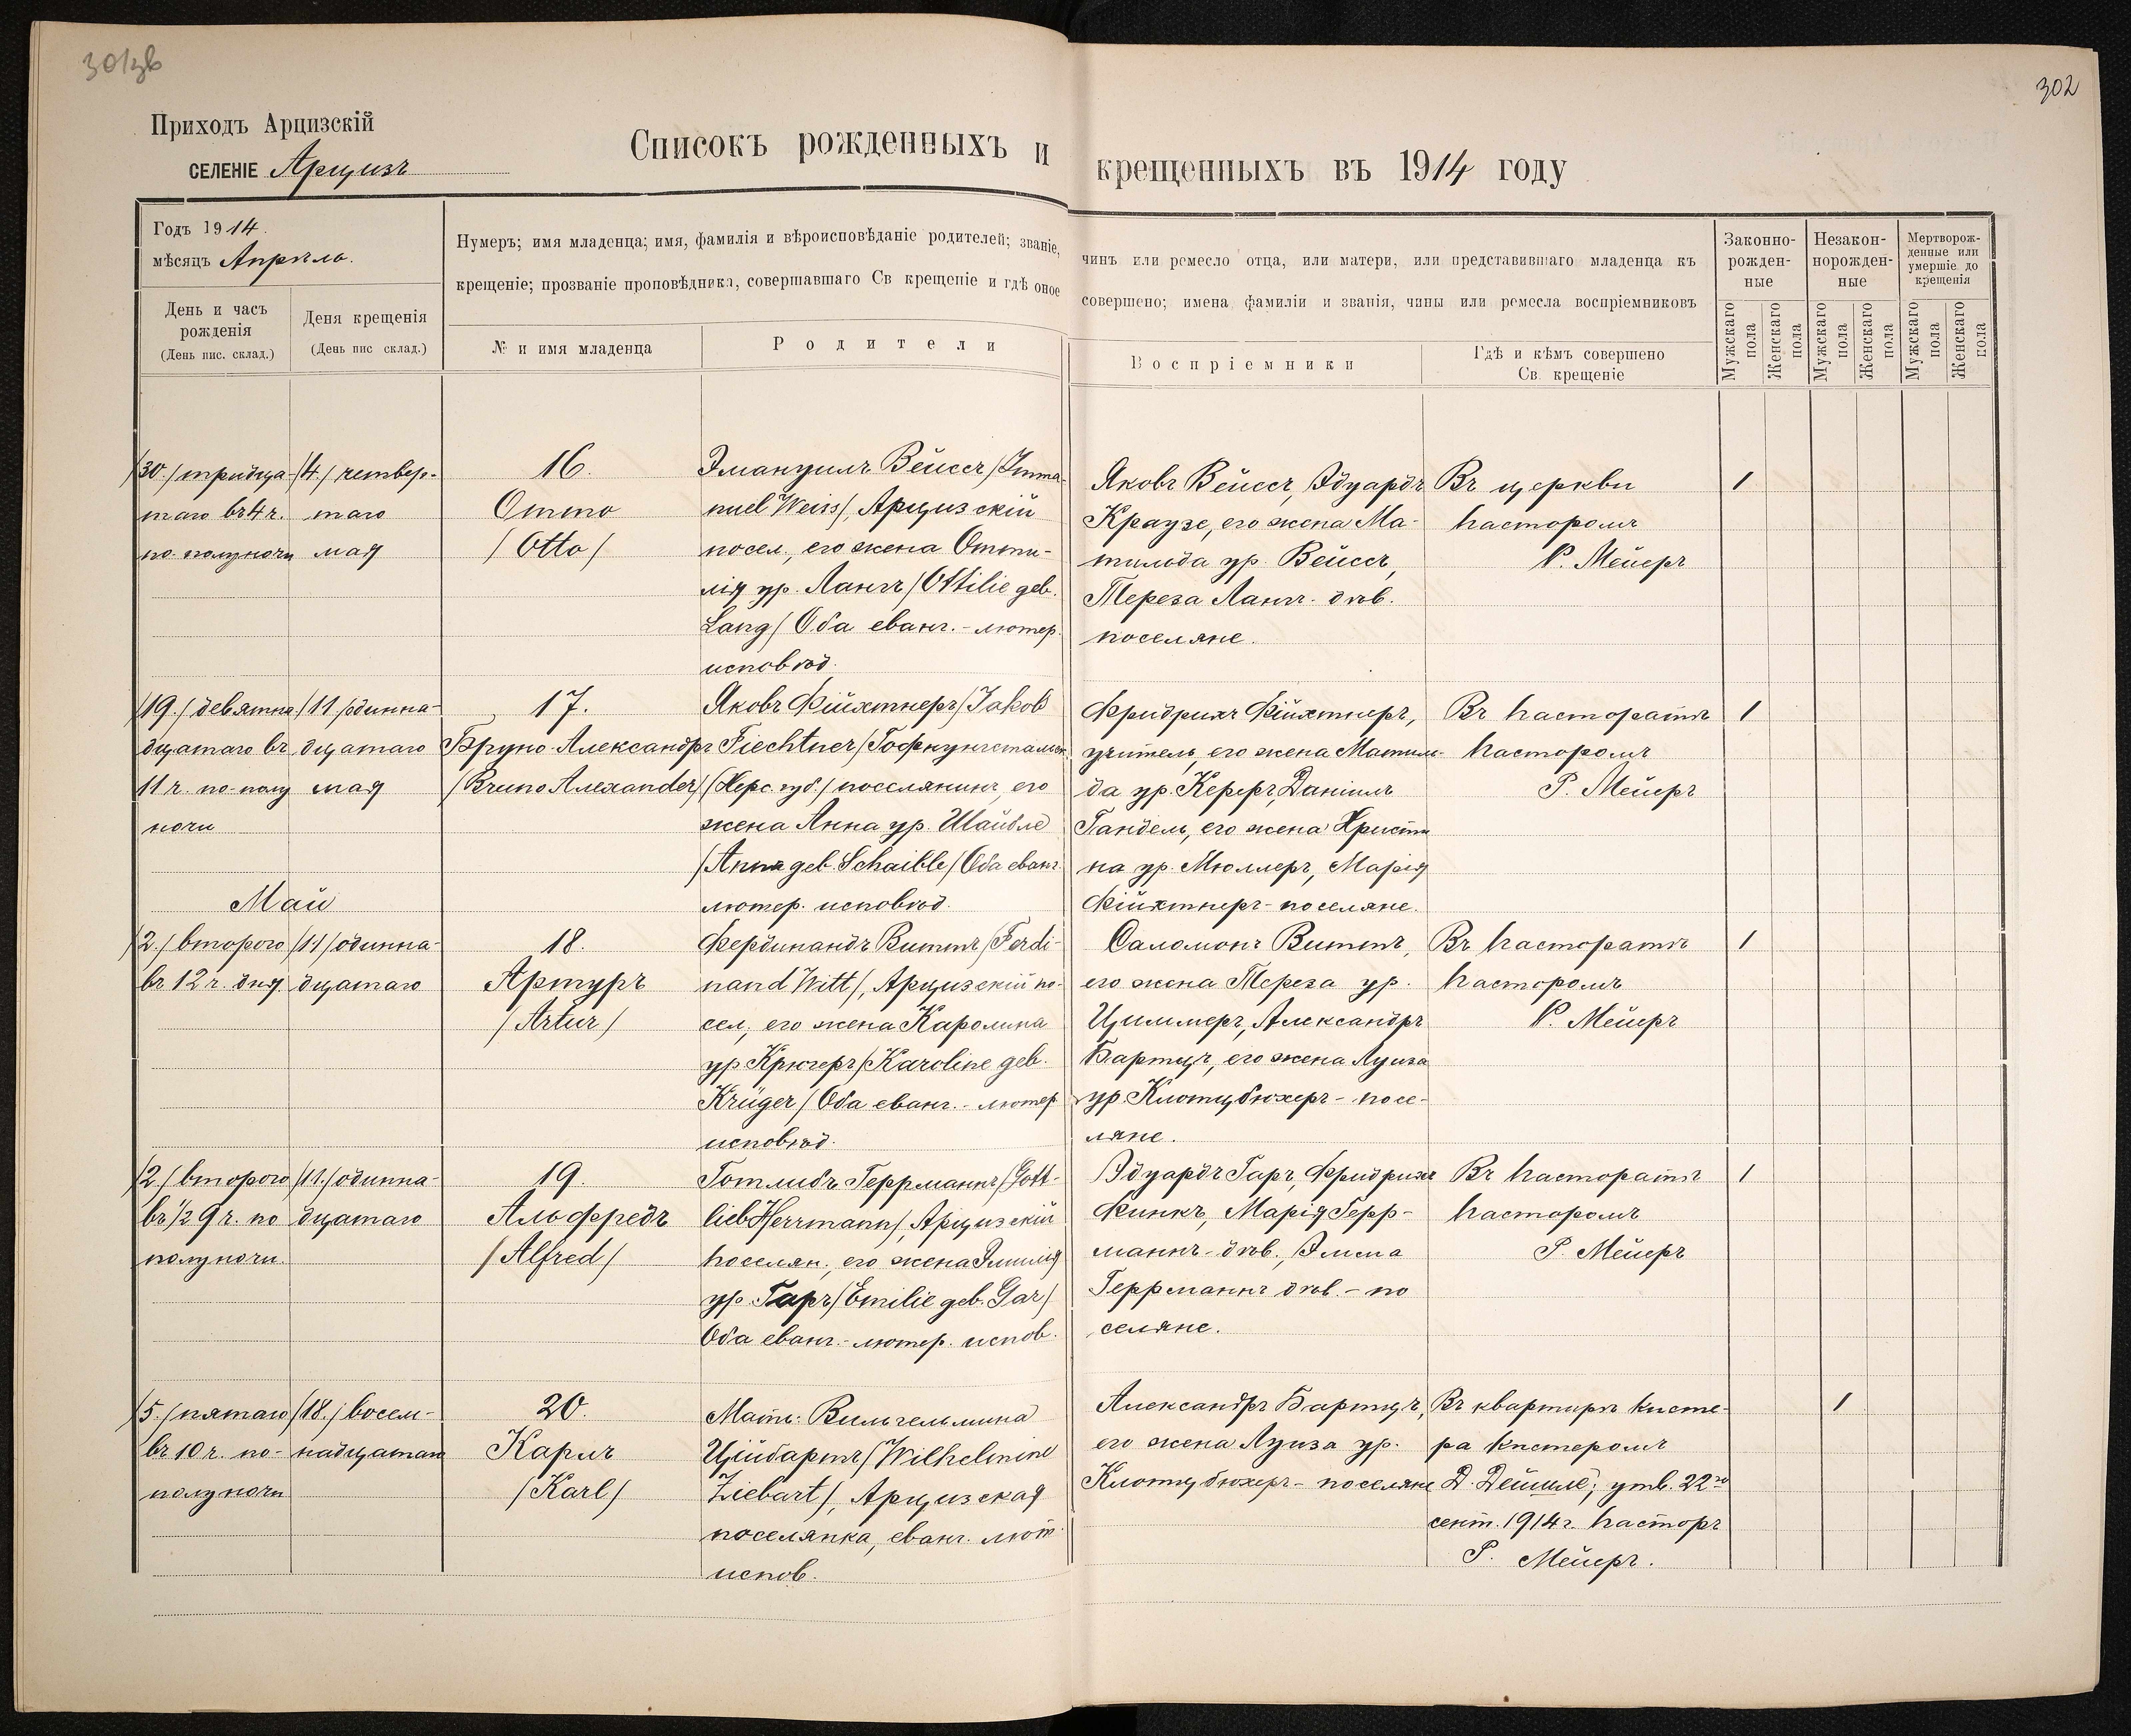 301зв
302
Приходъ Арцизскій
СЕЛЕНІЕ Арцизъ
Списокъ рожденныхъ и крещенныхъ въ 1914 году
Годъ 1914.
мѣсяцъ Апрѣль.
Нумеръ; имя младенца; имя, фамилія и вѣроисповѣданіе родителей; званіе, чинъ или ремесло отца, или матери, или представившаго младенца къ
крещеніе; прозваніе проповѣдника, совершавшаго Св крещеніе и гдѣ оное совершено; имена фамиліи и званія, чины или ремесла воспріемниковъ
День и часъ
рожденія
(День пис. склад.)
Деня крещенія
(День пис склад.)
№ и имя младенца
Родители
Воспріемники
Гдѣ и кѣмъ совершено
Св. крещеніе
Законно-
рожден-
ные
Незакон-
норожден-
ные
Мертворож-
денные или
умершіе до
крещенія
Мужскаго
пола
Женскаго
пола
Мужскаго
пола
Женскаго
пола
Мужскаго
пола
Женскаго
пола
/30./ тридца-
таго въ 4 ч.
по полуночи
/4./ четвер-
таго
мая
16.
Отто
/Otto/
Эмануилъ Вейссъ /Imma-
nuel Weiss/, Арцизскій
посел., его жена Отти-
лія ур. Лангъ /Ottilie geb.
Lang/ Оба еванг.-лютер.
исповѣд.
Яковъ Вейссъ, Эдуардъ
Краузе, его жена Ма-
тильда ур. Вейссъ,
Тереза Лангъ дѣв.
поселяне.
Въ церкви
Пасторомъ
Р. Мейеръ
1
/19./ девятна-
дцатаго въ
11 ч. по-полу
ночи
/11/ одинна-
дцатаго
мая
17.
Бруно Александръ
/Bruno Alexander/
Яковъ Фійхтнеръ /Jakob
Fiechtner/ Гофнунгстальск.
(Херс. губ.) поселянинъ, его
жена Анна ур. Шайбле
/Anna geb. Schaible/ Оба еванг.
лютер. исповѣд.
Фридрихъ Фійхтнеръ,
учитель, его жена Матиль-
да ур. Кеферъ, Даніилъ
Гандель, его жена Христи
на ур. Мюллеръ, Марія
Фійхтнеръ - поселяне.
Въ Пасторатѣ
Пасторомъ
Р. Мейеръ
1
Май
/2./ второго
въ 12 ч. дня
/11/ одинна-
дцатаго
18.
Артуръ
/Artur/
Фердинандъ Виттъ /Ferdi-
nand Witt/, Арцизскій по-
сел., его жена Каролина
ур Крюгеръ /Karoline geb.
Krüger/ Оба еванг.-лютер
исповѣд.
Саломонъ Виттъ,
его жена Тереза ур.
Циммеръ, Александръ
Бартцъ, его жена Луиза
ур. Клотцбюхеръ - посе-
ляне.
Въ Пасторатѣ
Пасторомъ
Р. Мейеръ
1
/2./ второго
въ ½ 9 ч. по
полуночи.
/11./ одинна-
дцатаго
19.
Альфредъ
/Alfred/
Готлибъ Геррманнъ /Gott-
lieb Herrmann/, Арцизскій
поселян., его жена Эмилія
ур. Гаръ /Emilie geb. Gar/
Оба еванг.-лютер. испов.
Эдуардъ Гаръ, Фридрихъ
Финкъ, Марія Герр-
маннъ - дѣв., Эльма
Геррманнъ дѣв. - по
селяне.
Въ Пасторатѣ
Пасторомъ
Р. Мейеръ
1
/5./ пятаго
въ 10 ч. по-
полуночи
/18./ восем-
надцатаго
20.
Карлъ
/Karl/
Мать: Вильгельмина
Ційбартъ /Wilhelmine
Ziebart/, Арцизская
поселянка, еванг. лют.
испов.
Александръ Бартцъ,
его жена Луиза ур.
Клотцбюхеръ - поселяне
Въ квартирѣ Кисте-
ра Кистеромъ
Д. Дейшле; утв. 22го
сент. 1914 г. Пасторъ
Р. Мейеръ.
1